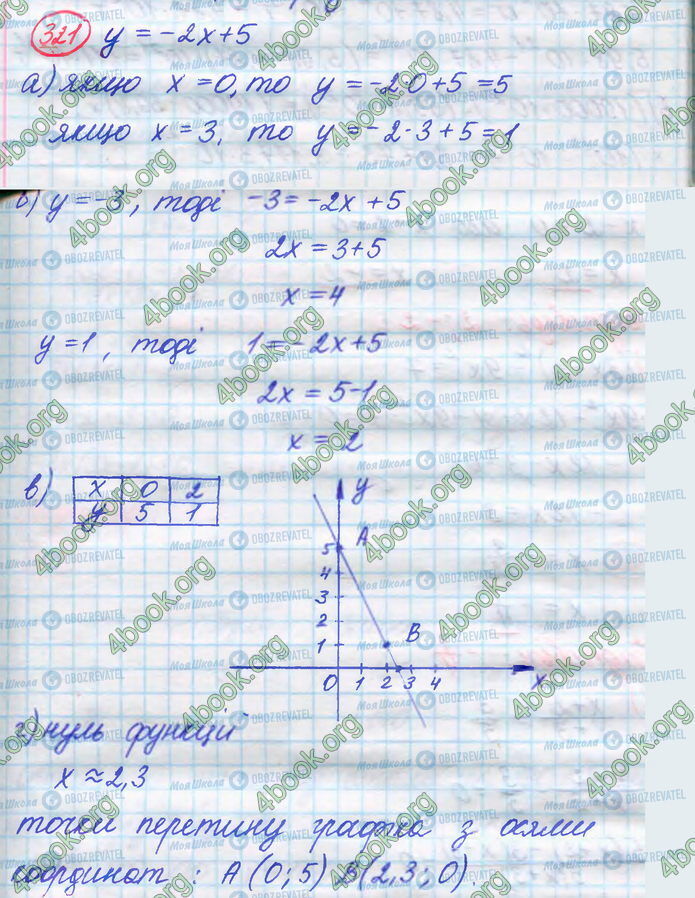 321 y = -2x+5
а) якщо x = 0, то y = -2·0+5 = 5
якщо x = 3, то y = -2·3+5 = 1
б) y = -3, тоді -3 = -2x + 5
2x = 3+5
x = 4
y = 1, тоді 1 = -2x+5
2x = 5-1
x = 2
в)
x 0 2
y 5 1
y
A
5
4
3
2
1
B
0 1 2 3 4 x
г) нуль функції
x ≈ 2,3
точки перетину графіка з осями
координат: A (0; 5) B (2,3; 0).
4book.org
МояШкола OBOZREVATEL